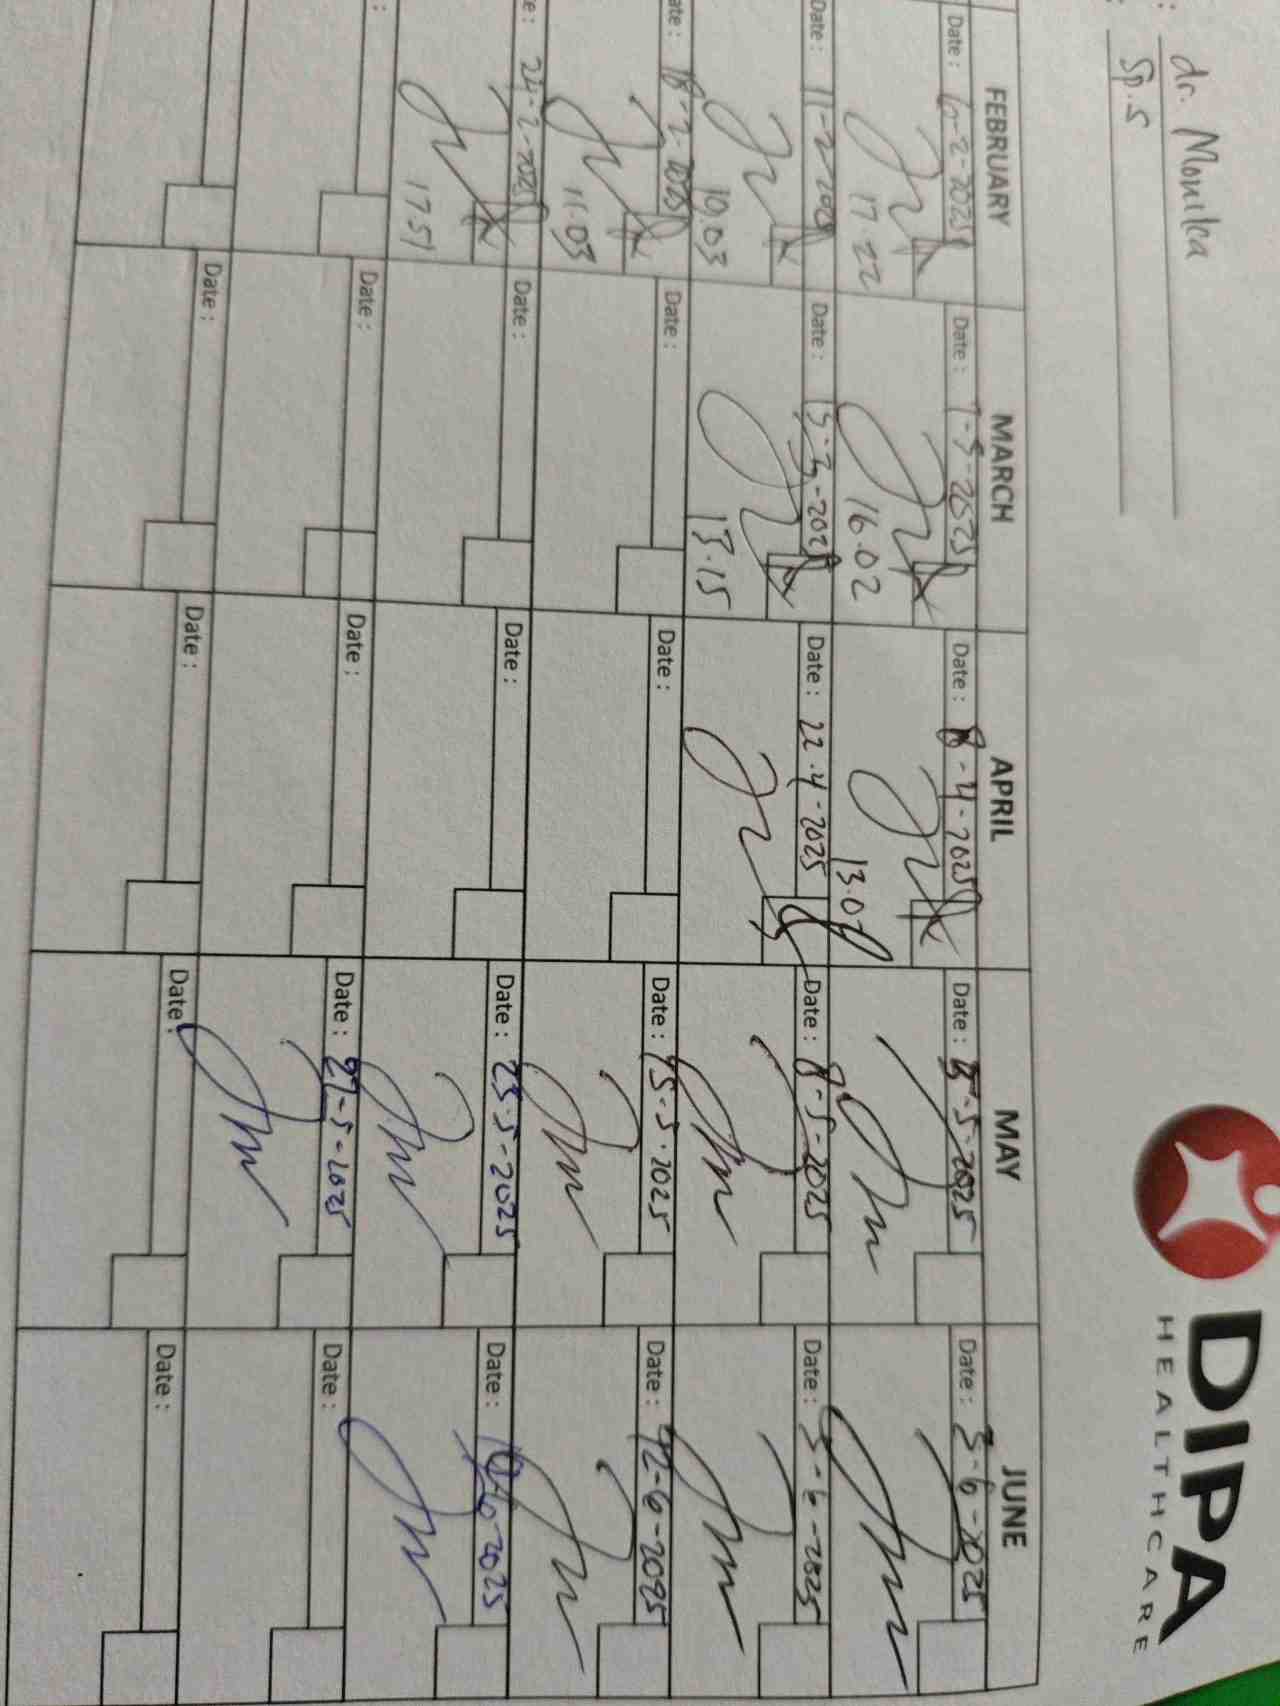 DIPA
HEALTHCARE
: dr. Monika
: Sp.S
FEBRUARY MARCH APRIL MAY JUNE
Date : 6-2-2025 Date : 7-3-2025 Date : 8-4-2025 Date : 5-5-2025 Date : 3-6-2025
17.22 16.02 13.07
Date : 11-2-2025 Date : 13-3-2025 Date : 22-4-2025 Date : 8-5-2025 Date : 5-6-2025
10.03 13.15
ate : 18-2-2025 Date : Date : Date : 15-5-2025 Date : 12-6-2025
11.03
e : 24-2-2025 Date : Date : Date : 23-5-2025 Date : -6-2025
17.51
: Date : Date : Date : 27-5-2025 Date :
Date : Date : Date : Date :